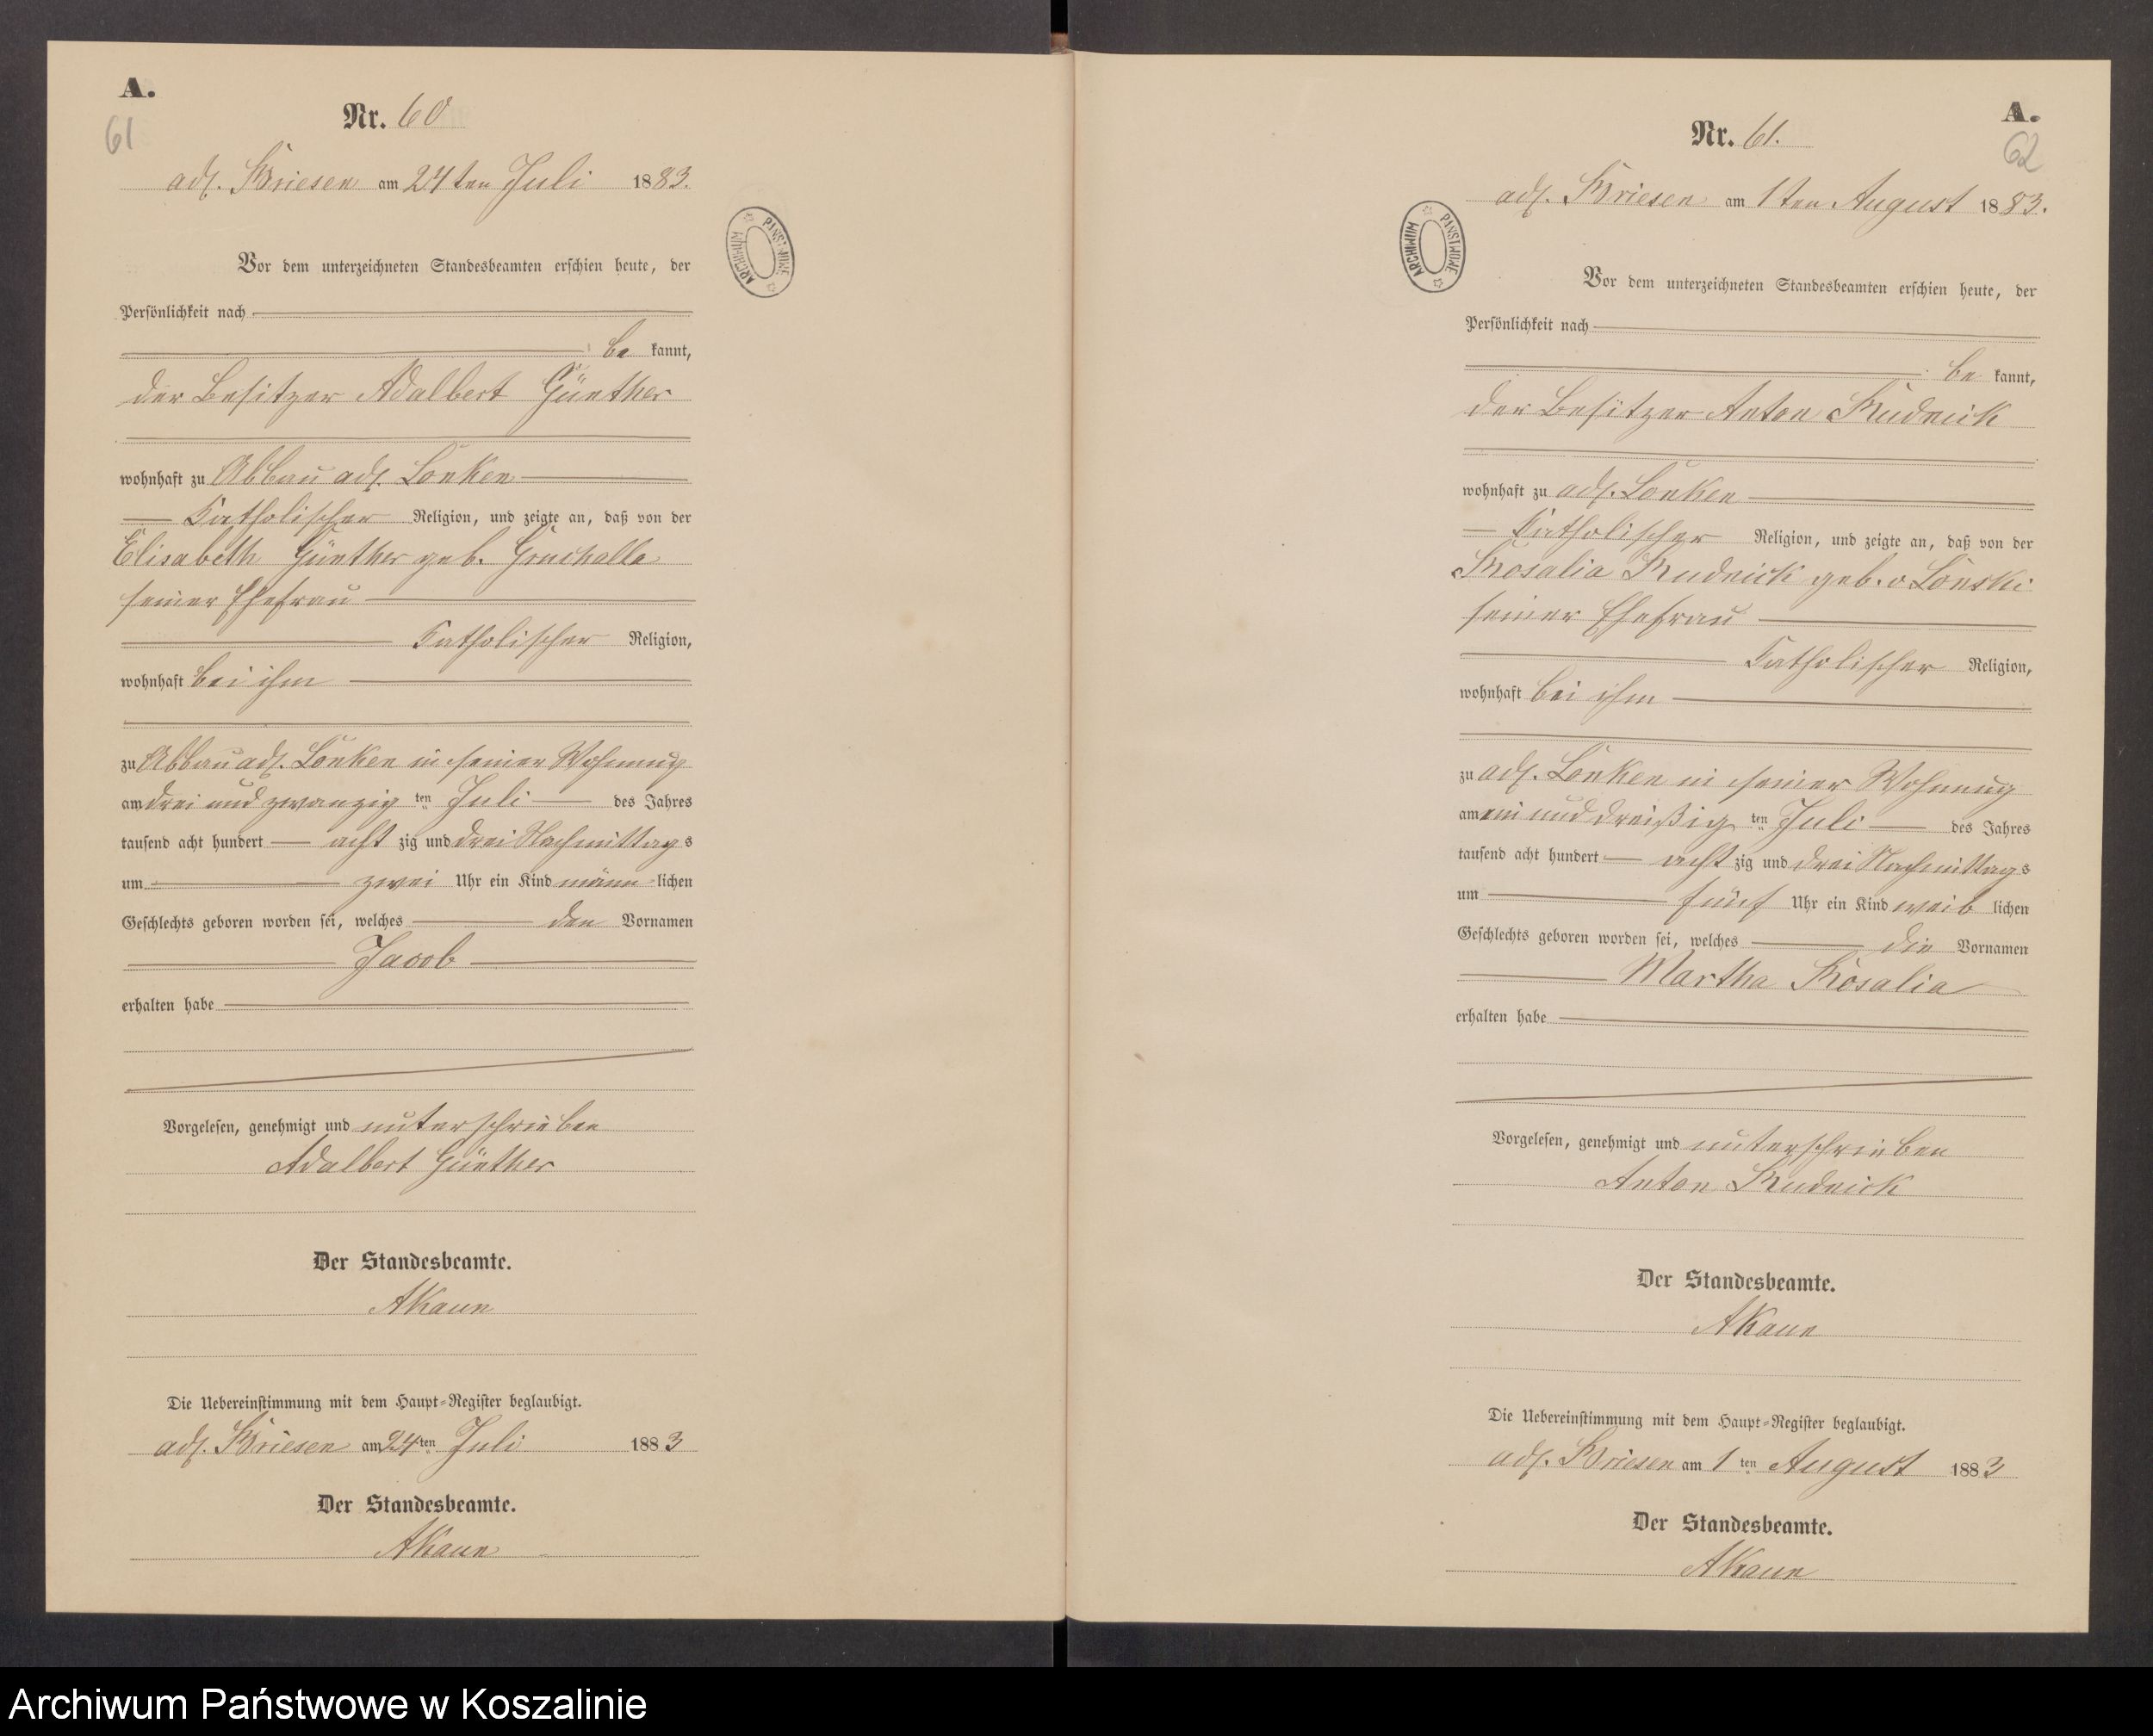 A.
61
Nr. 60
adl. Briesen am 24ten Juli 1883.
ARCHIWUM PAŃSTWOWE
Vor dem unterzeichneten Standesbeamten erschien heute, der
Persönlichkeit nach
be kannt,
der Besitzer Adalbert Günther
wohnhaft zu Abbau adl. Lonken
katholischer Religion, und zeigte an, daß von der
Elisabeth Günther geb. Gruchalla
seiner Ehefrau
katholischer Religion,
wohnhaft bei ihm
zu Abbau adl. Lonken in seiner Wohnung
am drei und zwanzig ten Juli des Jahres
tausend acht hundert acht zig und drei Nachmittags
um zwei Uhr ein Kind männ lichen
Geschlechts geboren worden sei, welches den Vornamen
Jacob
erhalten habe
Vorgelesen, genehmigt und unterschrieben
Adalbert Günther
Der Standesbeamte.
AKaun
Die Uebereinstimmung mit dem Haupt-Register beglaubigt.
adl. Briesen am 24ten Juli 1883
Der Standesbeamte.
AKaun
A.
62
Nr. 61.
adl. Briesen am 1ten August 1883.
ARCHIWUM PAŃSTWOWE
Vor dem unterzeichneten Standesbeamten erschien heute, der
Persönlichkeit nach
be kannt,
der Besitzer Anton Rudnick
wohnhaft zu adl. Lonken
katholischer Religion, und zeigte an, daß von der
Rosalia Rudnick geb. v Lonski
seiner Ehefrau
katholischer Religion,
wohnhaft bei ihm
zu adl. Lonken in seiner Wohnung
am ein und dreißig ten Juli des Jahres
tausend acht hundert acht zig und drei Nachmittags
um fünf Uhr ein Kind weib lichen
Geschlechts geboren worden sei, welches die Vornamen
Martha Rosalia
erhalten habe
Vorgelesen, genehmigt und unterschrieben
Anton Rudnick
Der Standesbeamte.
AKaun
Die Uebereinstimmung mit dem Haupt-Register beglaubigt.
adl. Briesen am 1 ten August 1883
Der Standesbeamte.
AKaun
Archiwum Państwowe w Koszalinie